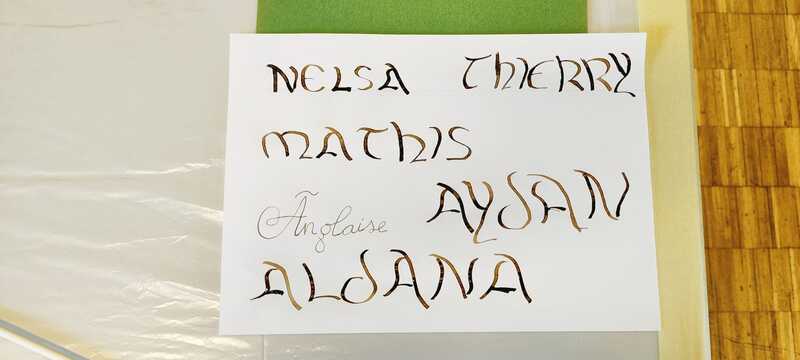 NELSA THIERRY
MATHIS
Anglaise AYDAN
ALDANA